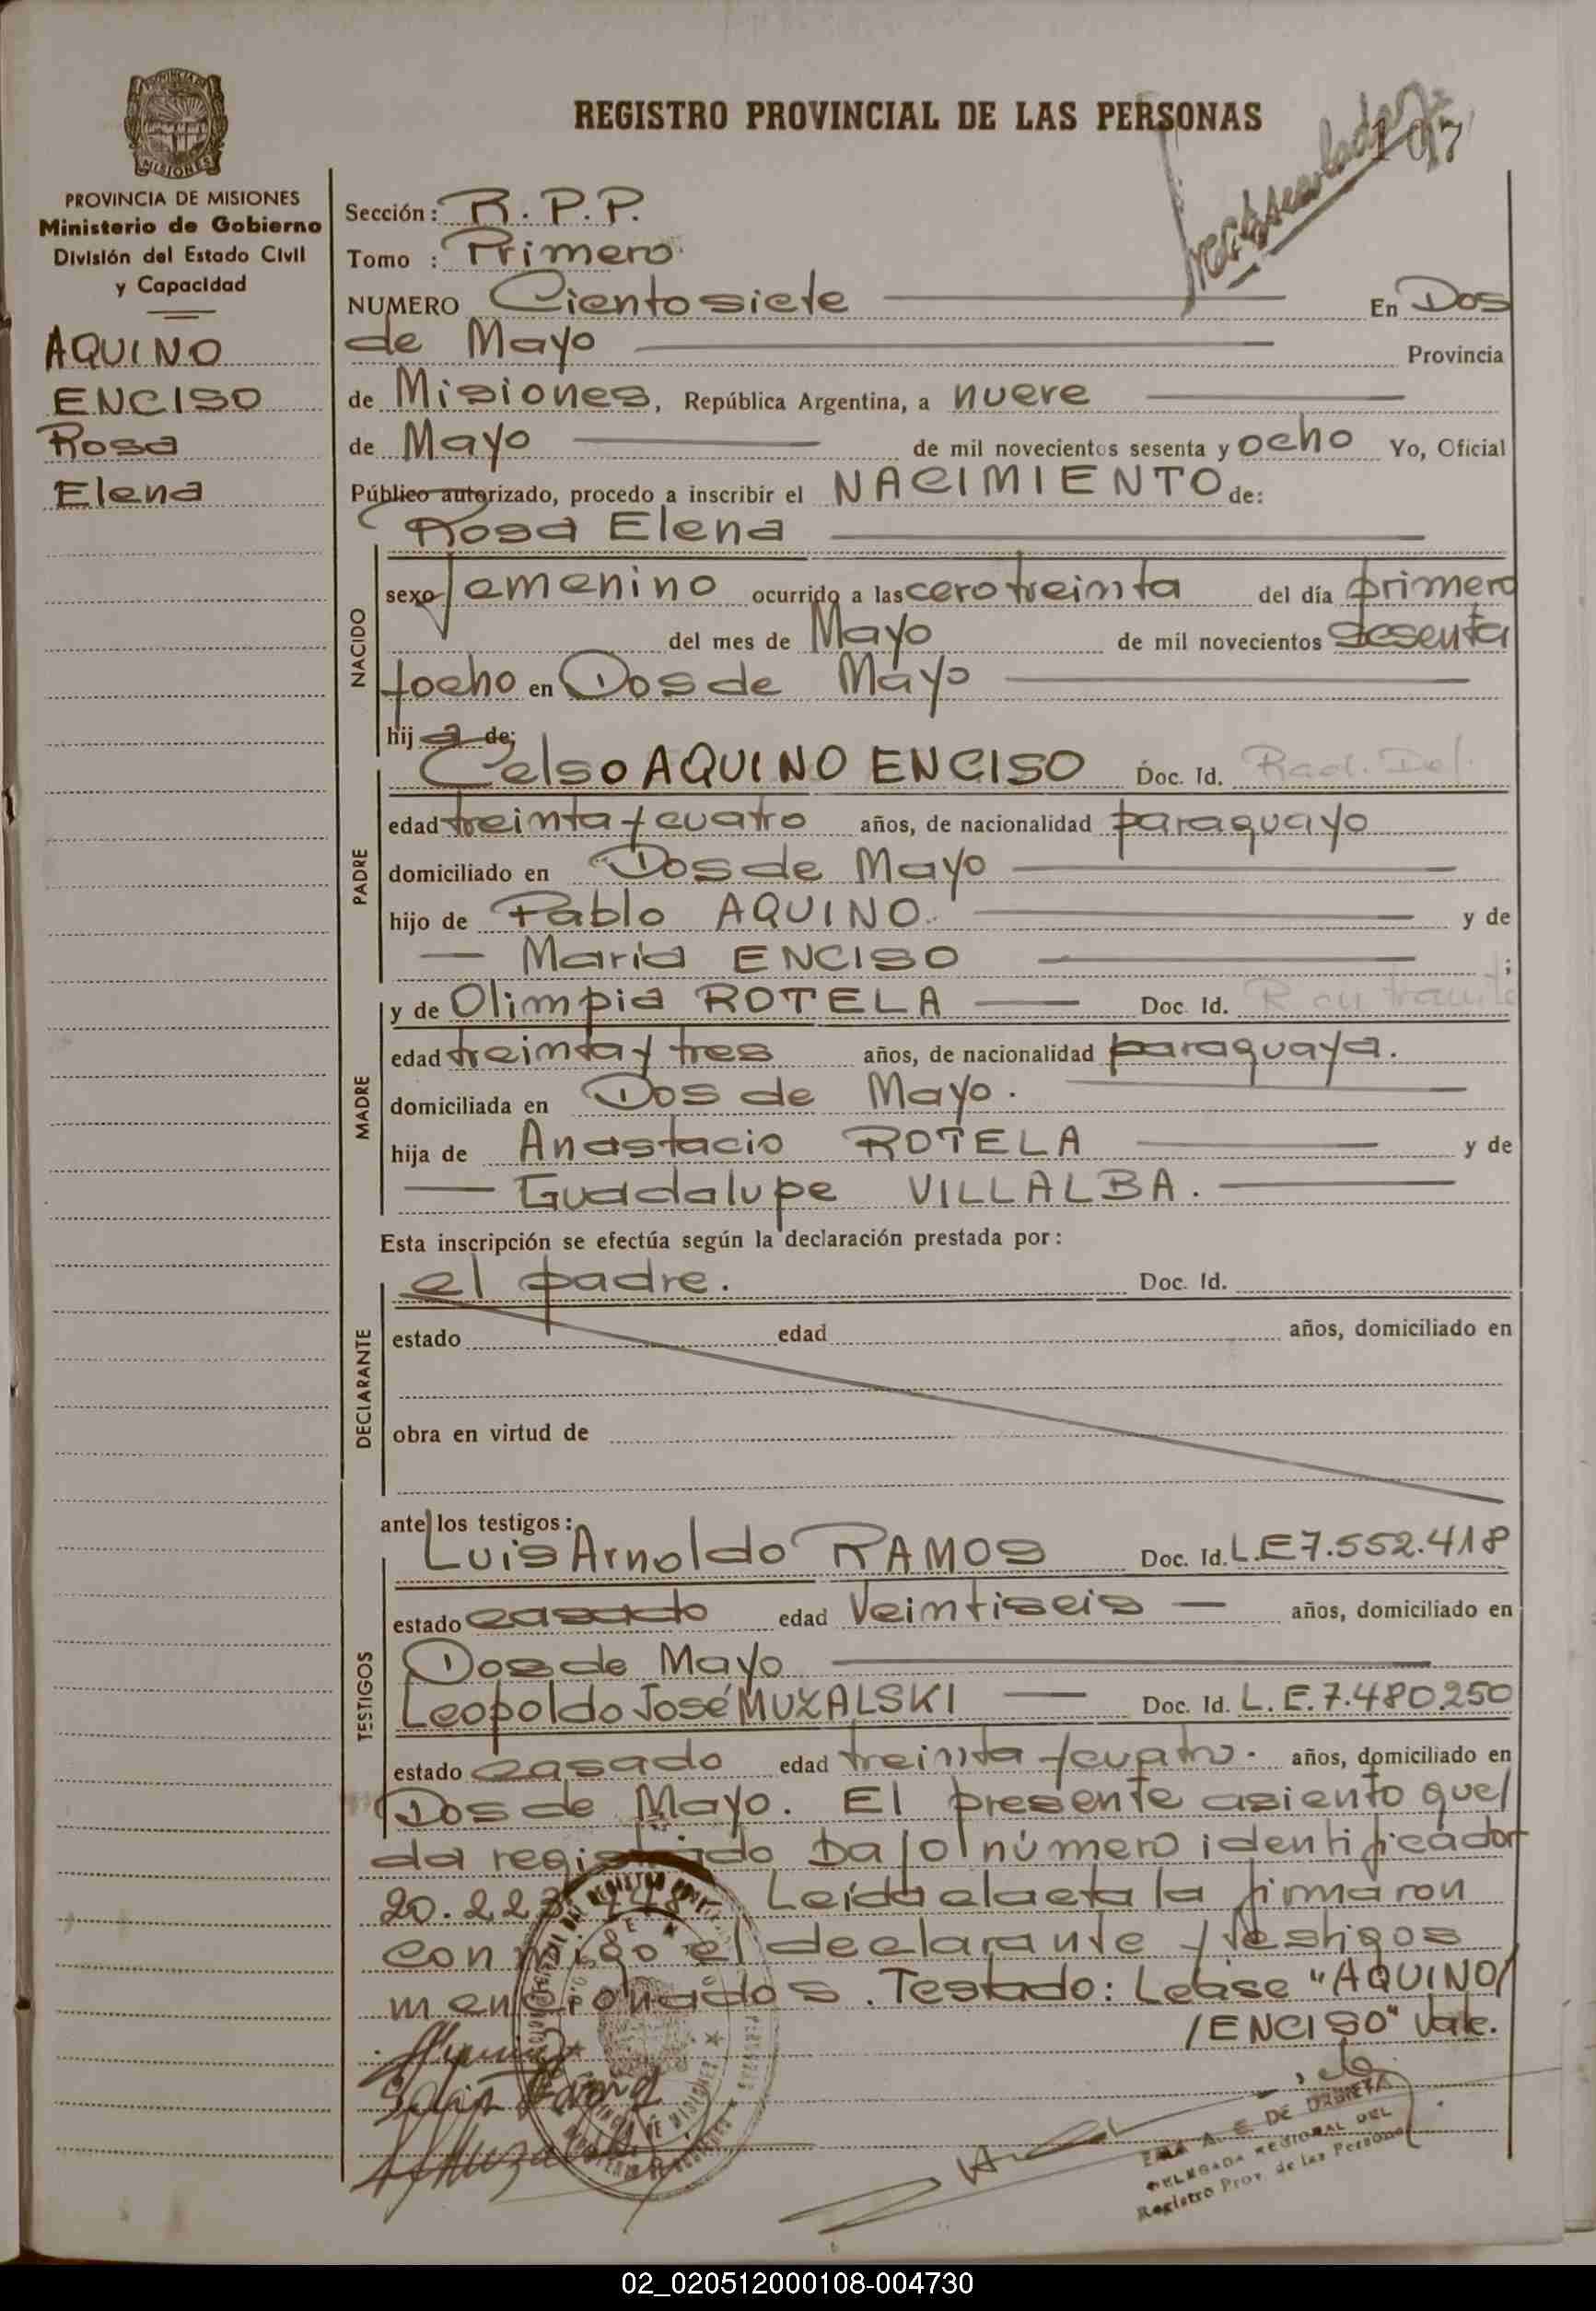 REGISTRO PROVINCIAL DE LAS PERSONAS
107
MISIONES
PROVINCIA DE MISIONES
Ministerio de Gobierno
División del Estado Civil
y Capacidad
AQUINO
ENCISO
Rosa
Elena
Sección: R.P.P.
Tomo: Primero
NUMERO Ciento siete En Dos
de Mayo Provincia
de Misiones, República Argentina, a nueve
de Mayo de mil novecientos sesenta y ocho Yo, Oficial
Público autorizado, procedo a inscribir el NACIMIENTO de:
Rosa Elena
NACIDO
sexo femenino ocurrido a las cero treinta del día primero
del mes de Mayo de mil novecientos sesenta
y ocho en Dos de Mayo
hij a de:
PADRE
Celso AQUINO ENCISO Doc. Id. Rad. Def.
edad treinta y cuatro años, de nacionalidad paraguayo
domiciliado en Dos de Mayo
hijo de Pablo AQUINO. y de
— Maria ENCISO ;
MADRE
y de Olimpia ROTELA Doc. Id. R en tramite
edad treinta y tres años, de nacionalidad paraguaya.
domiciliada en Dos de Mayo.
hija de Anastacio ROTELA y de
— Guadalupe VILLALBA.
Esta inscripción se efectúa según la declaración prestada por:
DECLARANTE
el padre. Doc. Id.
estado edad años, domiciliado en
obra en virtud de
ante los testigos:
TESTIGOS
Luis Arnoldo RAMOS Doc. Id. L.E 7.552.418
estado casado edad Veintiseis — años, domiciliado en
Dos de Mayo
Leopoldo José MUZALSKI — Doc. Id. L.E. 7.480.250
estado casado edad treinta y cuatro. años, domiciliado en
Dos de Mayo. El presente asiento que/
da registrado bajo número identificador
20.223. Leída el acta la firmaron
conmigo el declarante y testigos
mencionados. Testado: Lease "AQUINO/
/ENCISO" Vale.
A. E. DE URRIETA
DELEGADA REGIONAL DEL
Registro Prov. de las Personas
02_020512000108-004730